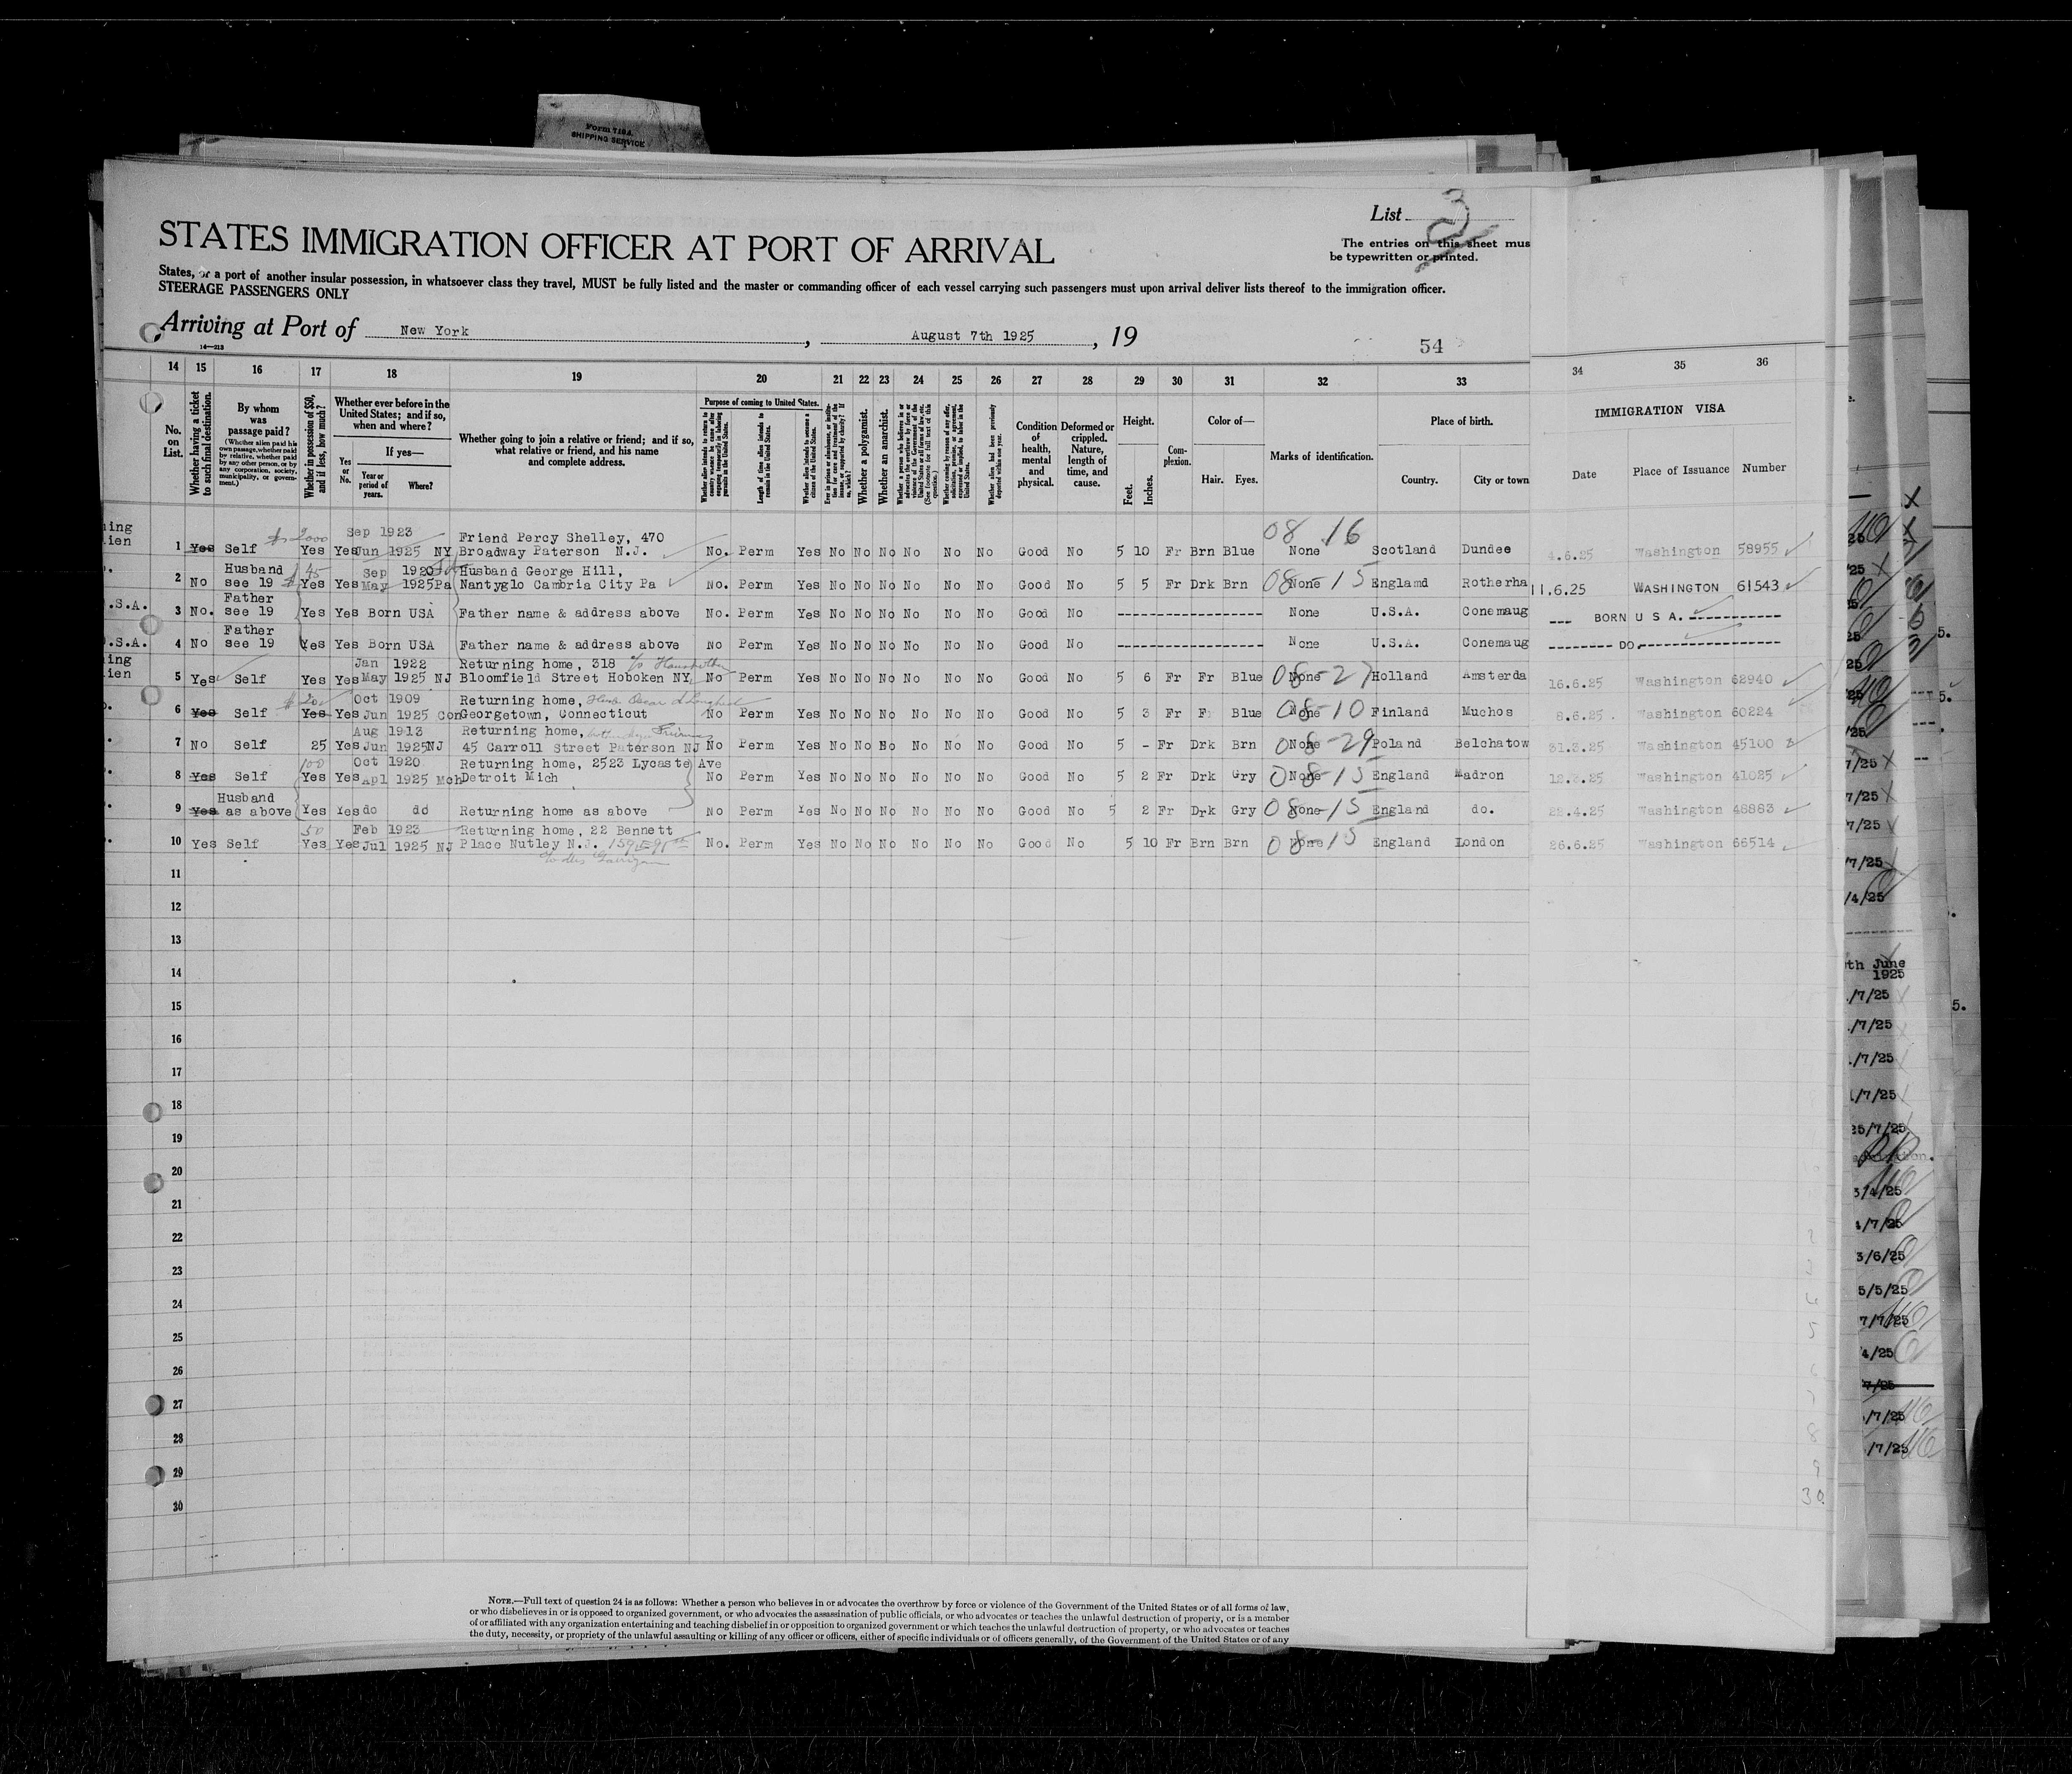 Form 7194.
SHIPPING SERVICE
List 3
STATES IMMIGRATION OFFICER AT PORT OF ARRIVAL
The entries on this sheet mus
be typewritten or printed.
States, or a port of another insular possession, in whatsoever class they travel, MUST be fully listed and the master or commanding officer of each vessel carrying such passengers must upon arrival deliver lists thereof to the immigration officer.
STEERAGE PASSENGERS ONLY
Arriving at Port of New York, August 7th 1925, 19
14—213
54
14 15 16 17 18 19 20 21 22 23 24 25 26 27 28 29 30 31 32 33 34 35 36
No. on List.
Whether having a ticket to such final destination.
By whom was passage paid?
(Whether alien paid his own passage, whether paid by relative, whether paid by any other person, or by any corporation, society, municipality, or government.)
Whether in possession of $50, and if less, how much?
Whether ever before in the United States; and if so, when and where?
Yes or No.
If yes—
Year or period of years.
Where?
Whether going to join a relative or friend; and if so, what relative or friend, and his name and complete address.
Purpose of coming to United States.
Length of time alien intends to remain in the United States.
Whether alien intends to become a citizen of the United States.
Whether a polygamist.
Whether an anarchist.
Condition of health, mental and physical.
Deformed or crippled. Nature, length of time, and cause.
Height.
Feet. Inches.
Complexion.
Color of—
Hair. Eyes.
Marks of identification.
Place of birth.
Country. City or town
IMMIGRATION VISA
Date Place of Issuance Number
ing
ien Sep 1923 Friend Percy Shelley, 470 08 16
1 Yes Self $2000 Yes Yes Jun 1925 NY Broadway Paterson N.J. No. Perm Yes No No No No No No Good No 5 10 Fr Brn Blue None Scotland Dundee 4.6.25 Washington 58955
Husband 45 Sep 1920 Husband George Hill,
2 No see 19 Yes Yes May 1925 Pa Nantyglo Cambria City Pa No. Perm Yes No No No No No No Good No 5 5 Fr Drk Brn 08 None 15 Englamd Rotherha 11.6.25 WASHINGTON 61543
Father
.S.A. 3 No. see 19 Yes Yes Born USA Father name & address above No. Perm Yes No No No No No No Good No ---------- None U.S.A. Conemaug --- BORN U S A. ----------
Father
.S.A. 4 No see 19 Yes Yes Born USA Father name & address above No Perm Yes No No No No No No Good No ---------- None U.S.A. Conemaug -------- DO. ----------
ing Jan 1922 Returning home, 318
ien 5 Yes Self Yes Yes May 1925 NJ Bloomfield Street Hoboken NY. No Perm Yes No No No No No No Good No 5 6 Fr Fr Blue 08 None 27 Holland Amsterda 16.6.25 Washington 62940
$20 Oct 1909 Returning home,
6 Yes Self Yes Yes Jun 1925 Con Georgetown, Connecticut No Perm Yes No No No No No No Good No 5 3 Fr F Blue 08 None 10 Finland Muchos 8.6.25. Washington 60224
Aug 1913 Returning home,
7 No Self 25 Yes Jun 1925 NJ 45 Carroll Street Paterson NJ No Perm Yes No No No No No No Good No 5 - Fr Drk Brn 08 None 29 Poland Belchatow 31.3.25 Washington 45100
100 Oct 1920 Returning home, 2523 Lycaste Ave
8 Yes Self Yes Yes Apl 1925 Mch Detroit Mich No Perm Yes No No No No No No Good No 5 2 Fr Drk Gry 08 None 15 England Madron Washington 41025
Husband
9 Yes as above Yes Yes do do Returning home as above No Perm Yes No No No No No No Good No 5 2 Fr Drk Gry 08 None 15 England do. 22.4.25 Washington 48883
50 Feb 1923 Returning home, 22 Bennett
10 Yes Self Yes Yes Jul 1925 NJ Place Nutley N.J. No. Perm Yes No No No No No No Good No 5 10 Fr Brn Brn 08 None 15 England London 26.6.25 Washington 66514
11
12
13
14
15
16
17
18
19
20
21
22
23
24
25
26
27
28
29
30
NOTE.—Full text of question 24 is as follows: Whether a person who believes in or advocates the overthrow by force or violence of the Government of the United States or of all forms of law,
or who disbelieves in or is opposed to organized government, or who advocates the assassination of public officials, or who advocates or teaches the unlawful destruction of property, or is a member
of or affiliated with any organization entertaining and teaching disbelief in or opposition to organized government or which teaches the unlawful destruction of property, or who advocates or teaches
the duty, necessity, or propriety of the unlawful assaulting or killing of any officer or officers, either of specific individuals or of officers generally, of the Government of the United States or of any